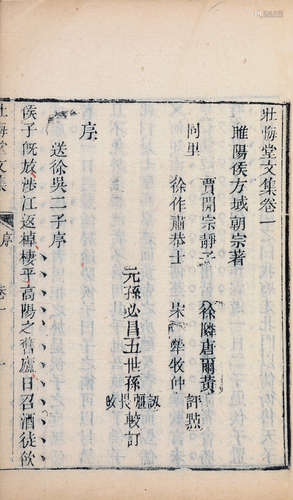 壮悔堂文集卷一
睢陽侯方域朝宗著
賈開宗靜子
徐鄰唐爾黃
同里
評點
徐作肅恭士
宋犖牧仲
元孫必昌五世孫
較訂
序
送徐吳二子序
侯子既放涉江返棹棲乎高陽之舊廬日召酒徒飲
壯悔堂文集
序
卷一
一